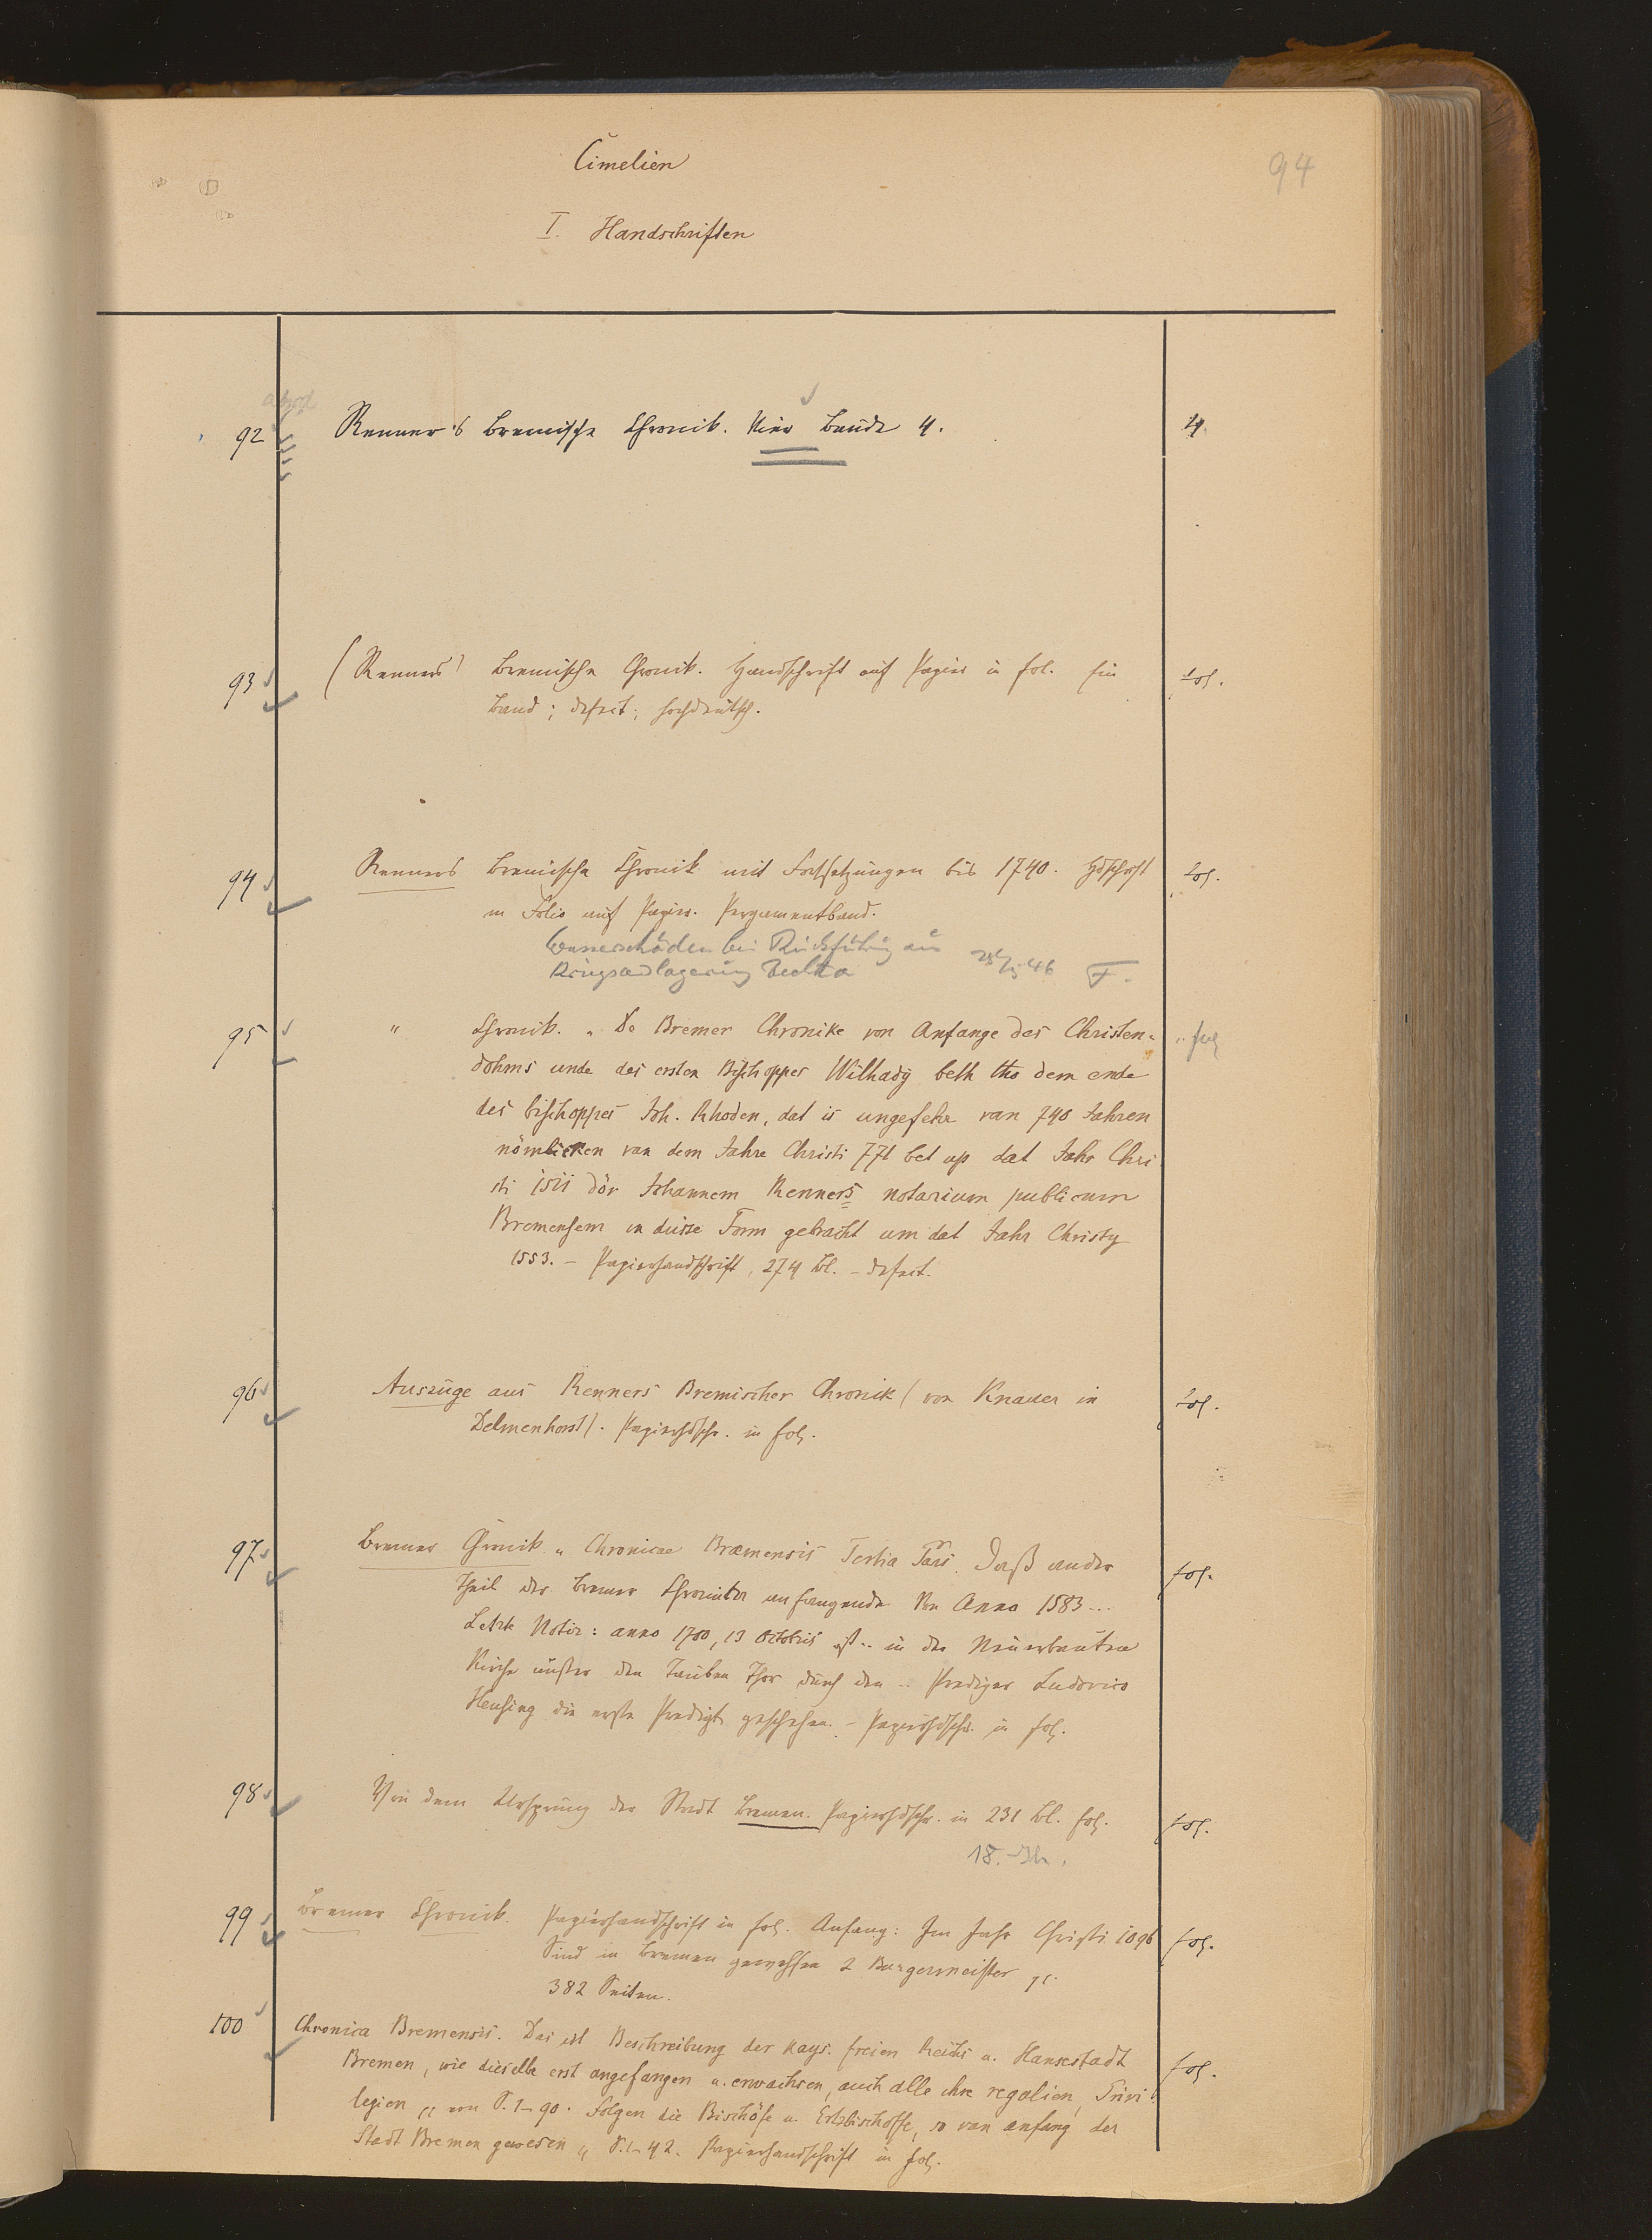 Cimelien
94
I. Handschriften
92 Renner's Bremische Chronik. Vier Bände 4. 4.
93 (Renners) Bremische Chronik. Handschrift auf Papier in fol. Ein fol.
Band; defect; hochdeutsch.
94 Renners Bremische Chronik mit Fortsetzungen bis 1740. Hdschrft fol.
in Folio auf Papier. Pergamentband.
Wasserschäden bei Rückführung aus
Kriegsauslagerung 46 F.
95 " Chronik. „De Bremer Chronike von Anfange des Christen- fol
dohms unde des ersten Bischoppes Wilhady beth tho dem ende
des bischoppes Joh. Rhoden, dat is ungefehr van 740 Jahren
nömlicken van dem Jahre Christi 771 bet up dat Jahr Chri
sti 1511 dör Johannem Renners notarium publicum
Bremensem in düsse Form gebracht um dat Jahr Christy
1553. – Papierhandschrift, 274 Bl. – defect.
96 Auszüge aus Renners Bremischer Chronik (von Knauer in fol.
Delmenhorst). Papierhdschr. in fol.
97 Bremer Chronik „Chronicae Bræmensis Tertia Pars. Daß ander fol.
Theil der Bremer Chroniken anfangende Von Anno 1583...
Letzte Notiz: anno 1700, 13 Octobris ist .. in der Neuerbauten
Kirche außer den Thor durch den .. Prediger Ludovico
Heusing die erste Predigt geschehen. – Papierhdschr. in fol.
98 Von dem Ursprung der Stadt Bremen. Papierhdschr. in 231 Bl. fol. fol.
18. Jh.
99 Bremer Chronik. Papierhandschrift in fol. Anfang: Im Jahr Christi 1096 fol.
Sind in Bremen gewessen 2 Burgermeister pp.
382 Seiten.
100 Chronica Bremensis. Das ist Beschreibung der kays. freien Reichs u. Hansestadt fol.
Bremen, wie dieselbe erst angefangen u. erwachsen, auch alle ihre regalien, Privi-
legien „ von S. 1–90. Folgen die Bischöfe u. Ertzbischoffe, so von anfang der
Stadt Bremen gewesen „ S. 1–42. Papierhandschrift in fol.